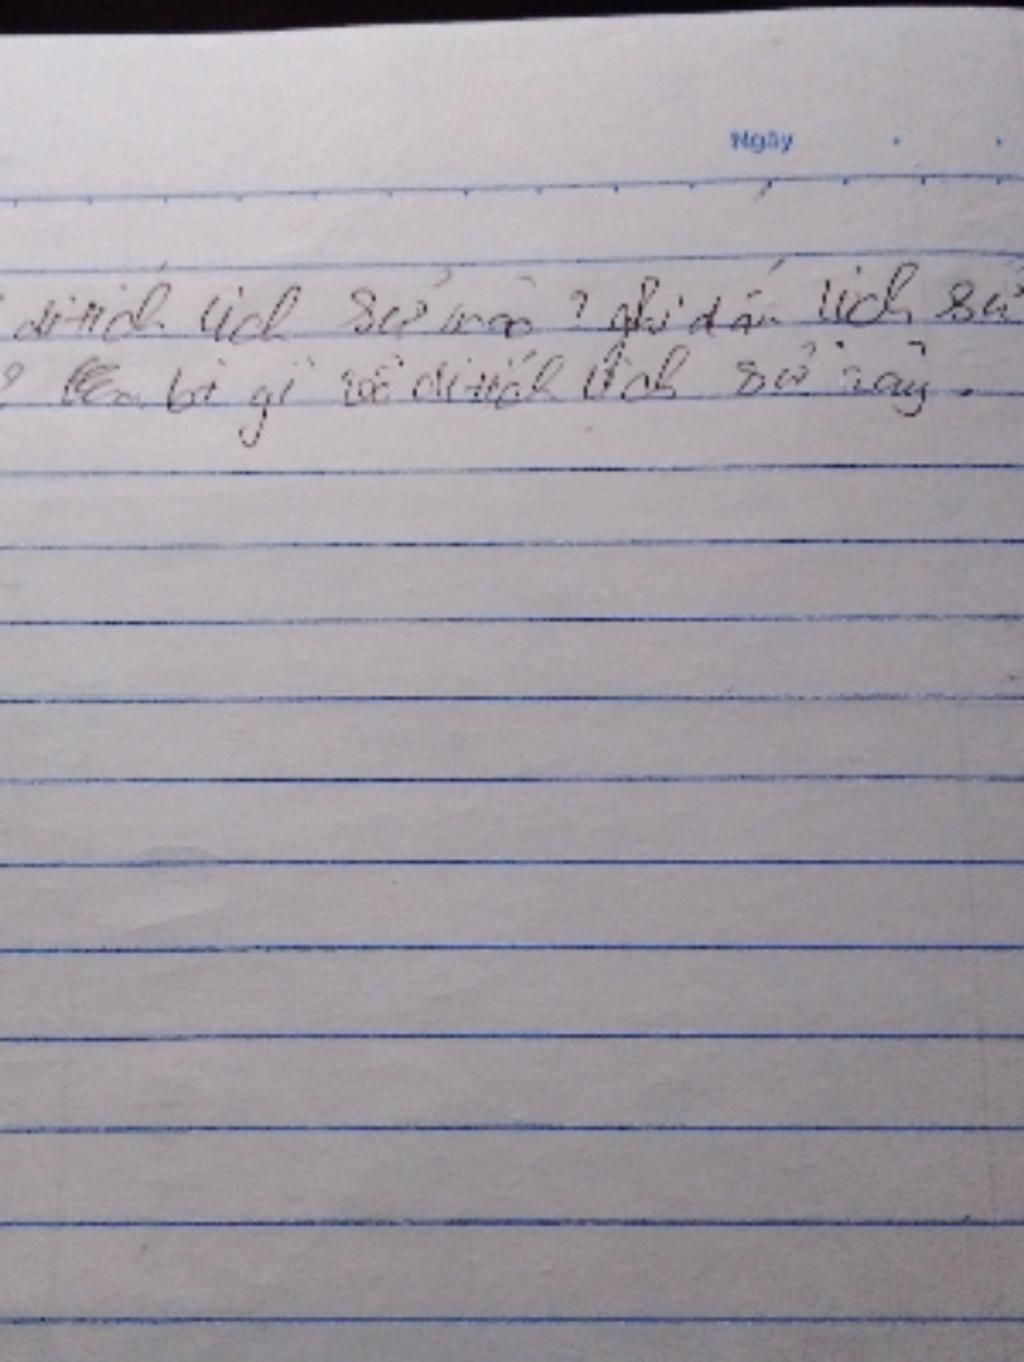 Ngày
di tích lịch sử nào ? ghi dấu lịch sử
? Em bi gì về di tích lịch sử này.